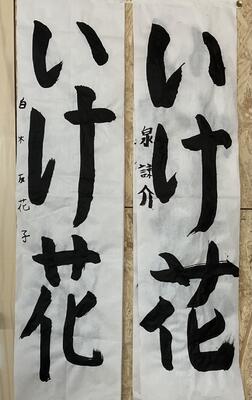 いけ花
泉謙介
いけ花
白木友花子